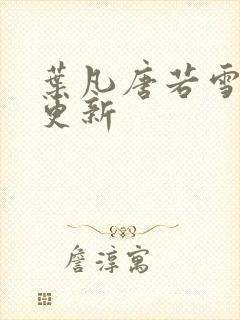 葉凡唐若雪
更新
詹淳寓